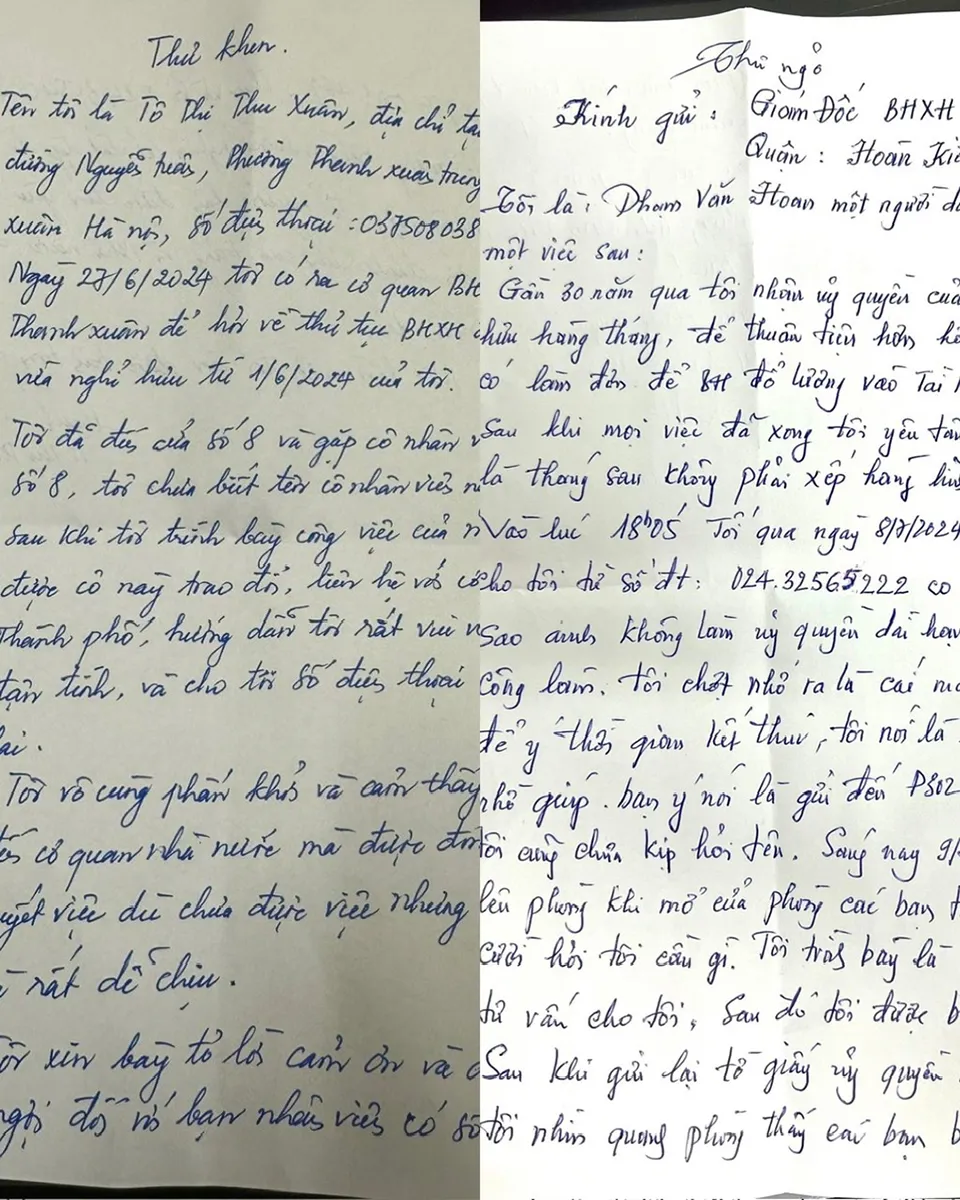 Thư khen.
Tên tôi là Tô Thị Thu Xuân, địa chỉ tạ
đường Nguyễn tuân, Phường Thanh xuân trung
xuân Hà nội, số điện thoại : 037508038
Ngày 27/6/2024 tôi có ra cơ quan BH
Thanh xuân để hỏi về thủ tục BHXH
vừa nghỉ hưu từ 1/6/2024 của tôi.
Tôi đã đến cửa số 8 và gặp cô nhân v
số 8, tôi chưa biết tên cô nhân viên n
sau khi tôi trình bày công việc của m
được cô này trao đổi, liên hệ với cơ
Thành phố, hướng dẫn tôi rất vui v
tận tình, và cho tôi số điện thoại
ại.
Tôi vô cùng phấn khởi và cảm thấy
đến cơ quan nhà nước mà được đón
uyết việc dù chưa được việc nhưng
rất dễ chịu.
ôi xin bày tỏ lời cảm ơn và
ngợi đối với bạn nhân viên có số
Thư ngỏ
Kính gửi : Giám Đốc BHXH
Quận : Hoàn Kiế
Tôi là : Phạm Văn Hoan một người dâ
một việc sau :
Gần 30 năm qua tôi nhận uỷ quyền củ
hưu hàng tháng, để thuận tiện hơn
có làm đơn để BH đổ lương vào Tài
Sau khi mọi việc đã xong tôi yên tâ
là tháng sau không phải xếp hàng
Vào lúc 18h05 Tối qua ngày 8/7/2024
cho tôi từ số đt : 024.32565222 co
Sao anh không làm uỷ quyền dài hạn
công làm. tôi chợt nhớ ra là cái
để ý thời gian kết thúc, tôi nói là
nhờ giúp. bạn ý nói là gửi đến P302
tôi cũng chưa kịp hỏi tên. Sáng nay 9/
lên phòng khi mở cửa phòng các bạn
cười hỏi tôi cần gì. Tôi trình bày là
tư vấn cho tôi, Sau đó tôi được b
Sau khi gửi lại tờ giấy uỷ quyền
tôi nhìn quang phòng thấy các bạn b